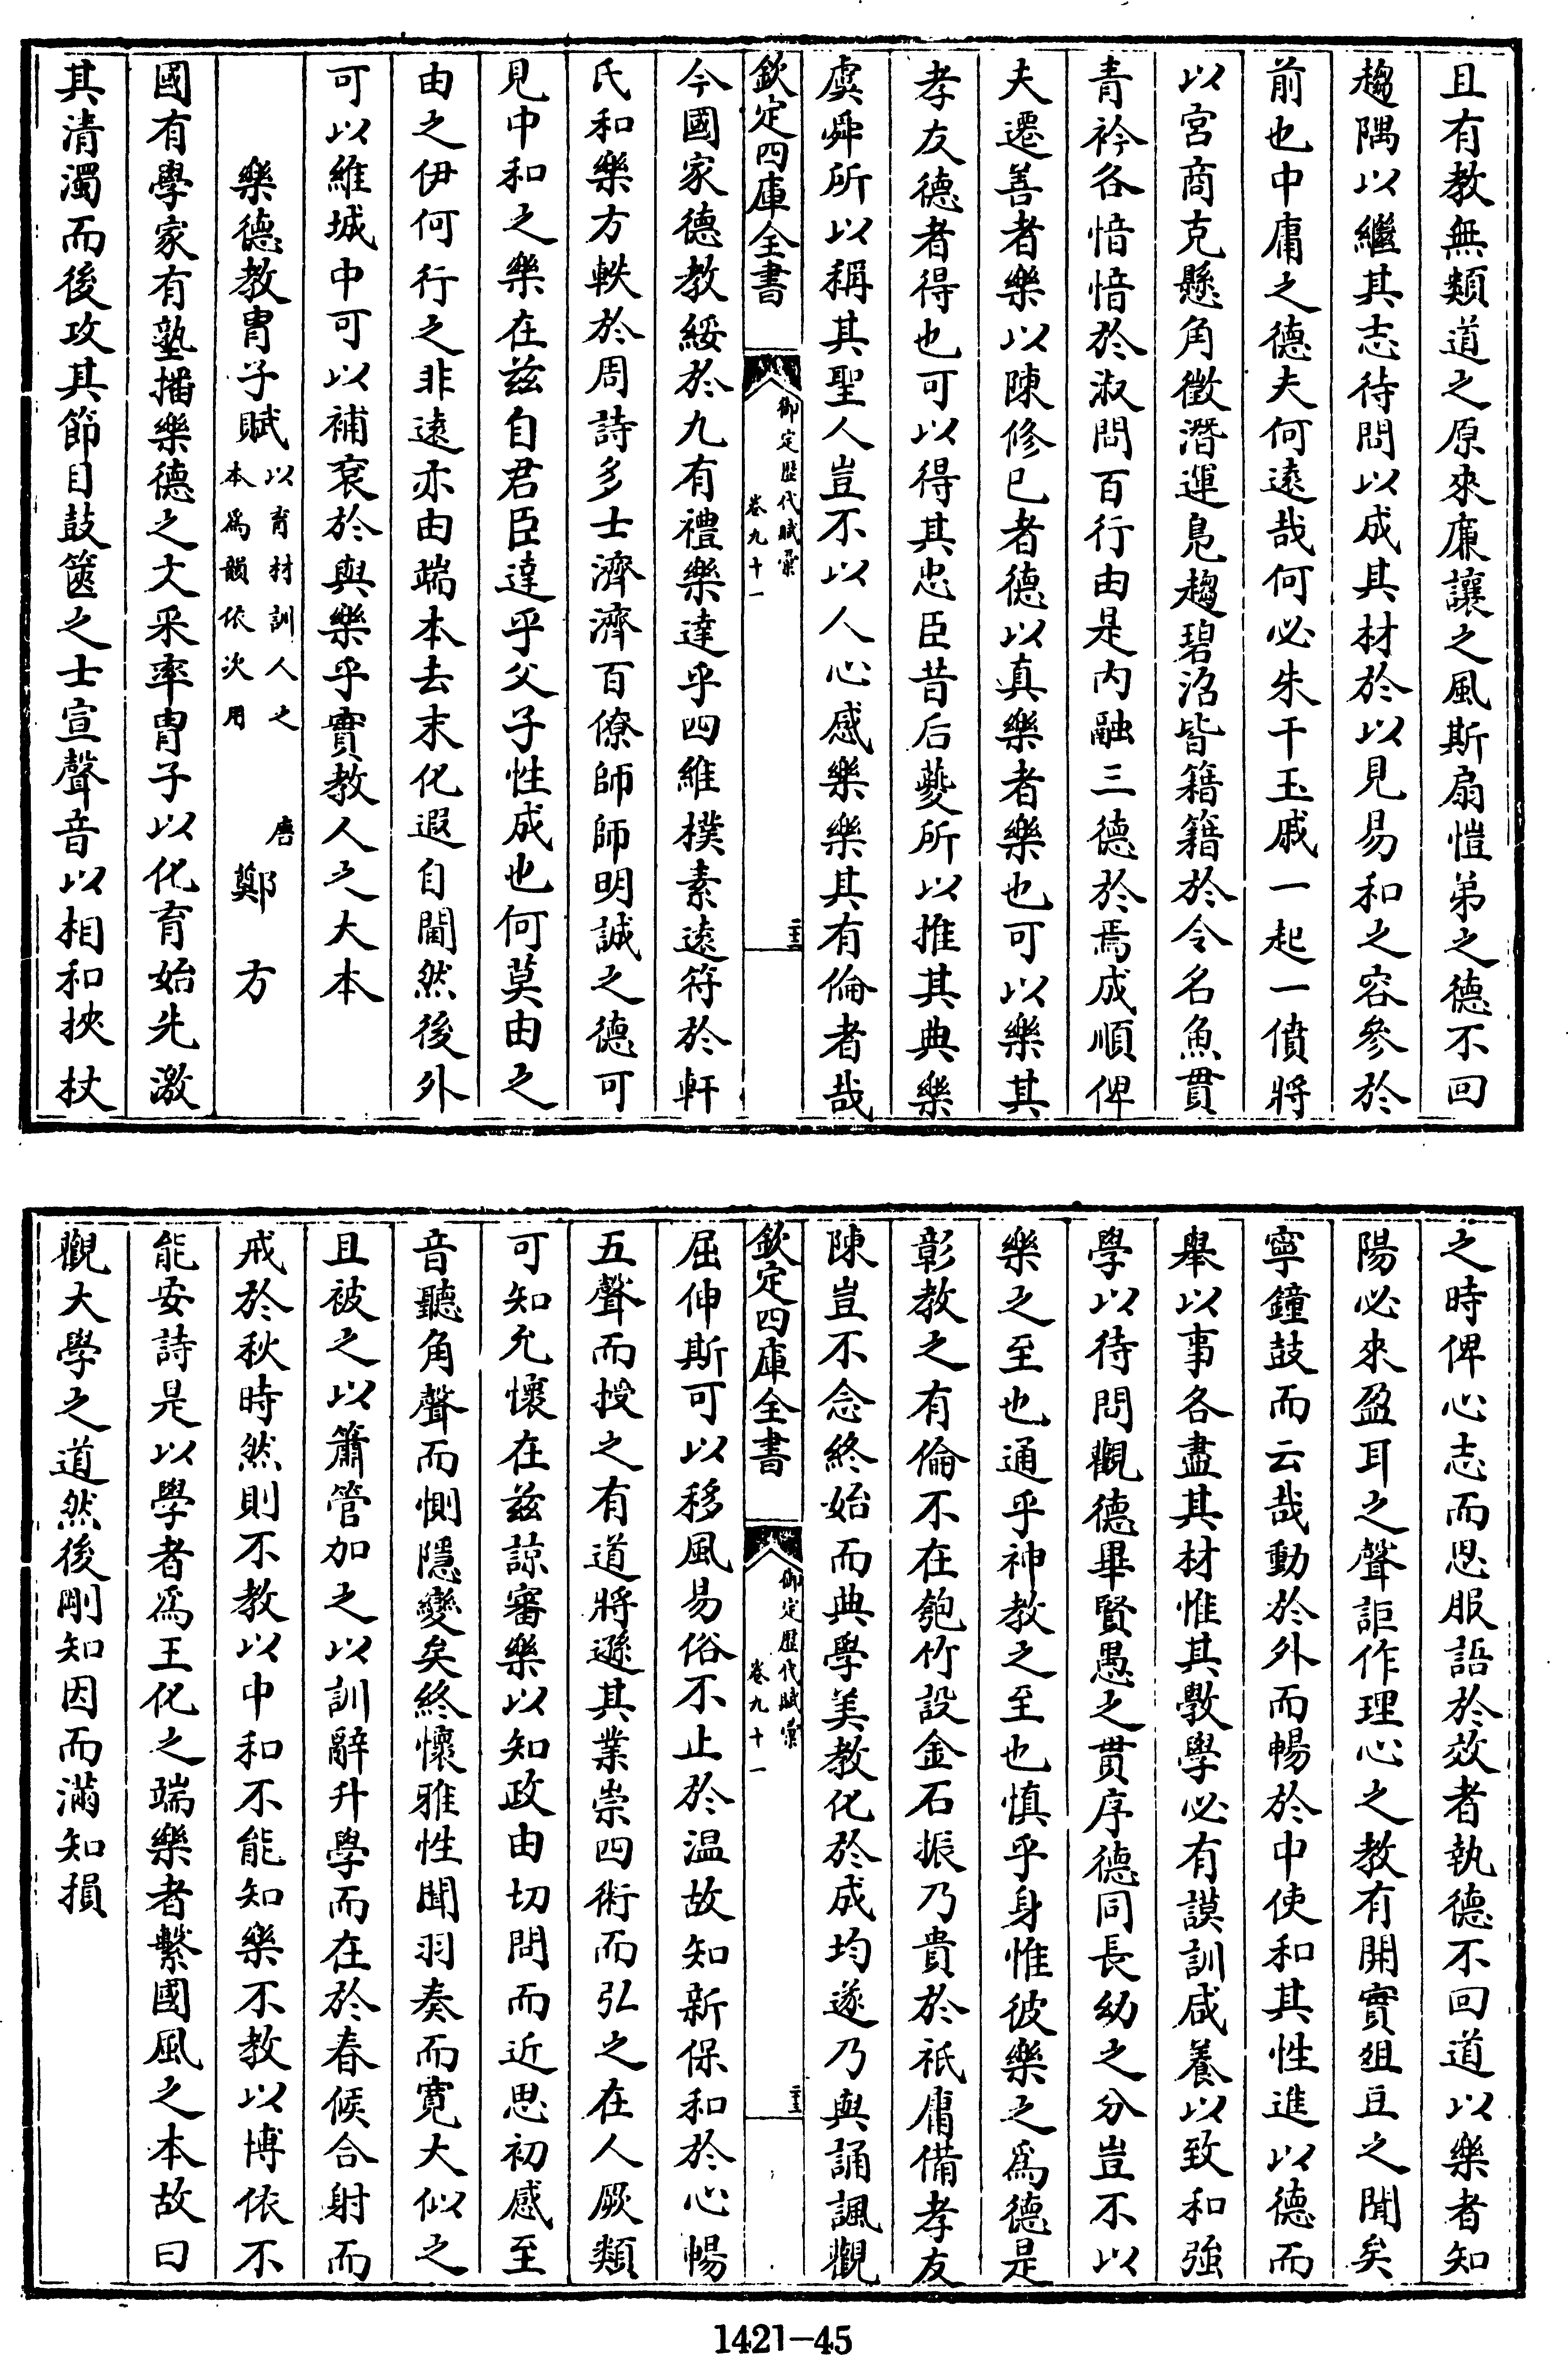 且有教無類道之原來廉讓之風斯扇愷弟之德不回
趨隅以繼其志待問以成其材於以見易和之容參於
前也中庸之德夫何逺哉何必朱干玉戚一起一僨將
以宮商克懸角徵潛運鳧趨碧沼皆籍籍於令名魚貫
青衿各愔愔於淑問百行由是内融三德於焉成順俾
夫遷善者樂以陳修已者德以真樂者樂也可以樂其
孝友德者得也可以得其忠臣昔后夔所以推其典樂
虞舜所以稱其聖人豈不以人心感樂樂其有倫者哉
欽定四庫全書
御定歴代賦彙
卷九十一
主
今國家德教綏於九有禮樂達乎四維樸素逺符於軒
氏和樂方軼於周詩多士濟濟百僚師師明誠之德可
見中和之樂在兹自君臣達乎父子性成也何莫由之
由之伊何行之非逺亦由端本去末化遐自閫然後外
可以維城中可以補衮於與樂乎實教人之大本
樂德教胄子賦
以育材訓人之
本為韻依次用
唐
鄭方
國有學家有塾播樂德之大采率胄子以化育始先激
其清濁而後攻其節目鼓篋之士宣聲音以相和挾杖
之時俾心志而思服語於效者執德不回道以樂者知
陽必來盈耳之聲詎作理心之教有開實俎豆之聞矣
寧鐘鼓而云哉動於外而暢於中使和其性進以德而
舉以事各盡其材惟其斆學必有謨訓咸養以致和強
學以待問觀德畢賢愚之貫序德同長幼之分豈不以
樂之至也通乎神教之至也慎乎身惟彼樂之為德是
彰教之有倫不在匏竹設金石振乃貴於祗庸備孝友
陳豈不念終始而典學美教化於成均遂乃與誦諷觀
欽定四庫全書
御定歴代賦彙
卷九十一
主
屈伸斯可以移風易俗不止於温故知新保和於心暢
五聲而授之有道將遜其業崇四術而弘之在人厥類
可知允懷在兹諒審樂以知政由切問而近思初感至
音聽角聲而惻隱變矣終懷雅性聞羽奏而寛大似之
且被之以簫管加之以訓辭升學而在於春候合射而
戒於秋時然則不教以中和不能知樂不教以博依不
能安詩是以學者為王化之端樂者繫國風之本故曰
觀大學之道然後剛知因而滿知損
1421-45